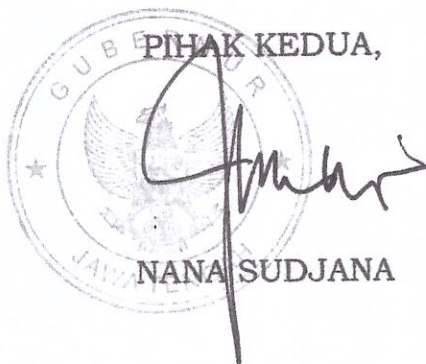 PIHAK KEDUA,
GUBERNUR
JAWA TENGAH
NANA SUDJANA